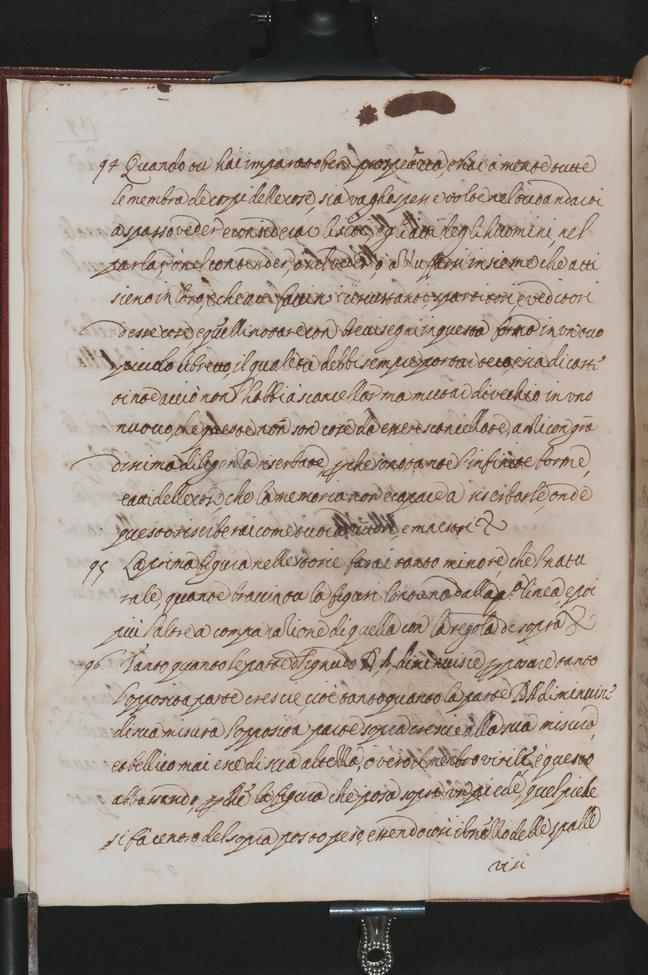 94 Quando tu hai imparato ben prospettiva, e hai a mente tutte
le membra, e corpi delle cose, sia vagho spesse volte nel tuo andarti
a spasso veder, e considerar li siti, e gli atti degli huomini, nel
parlar, o nel contender, o nel ridere o azzuffarsi insieme che atti
sieno in loro, e che atti faccino i circunstanti, spartitori, e veditori
d'esse cose, e quelli notare con brevi segni in questa forma in un tuo
piccolo libretto, il quale tu debbi sempre portar teco, e sia di carte
tinte acciò non l'habbi à scancellar ma mutar di vecchio in uno
nuovo, che queste non son cose da essere scancellate, anzi con gra
dissima diligenza riserbate, perche sono tante l'infinite forme,
e atti delle cose, che la memoria non è capace a riserbarle, onde
queste riserberai come tuoi autori, e maestri
95 La prima figura nelle storie farai tanto minore, che 'l natu
rale, quante braccia tu la figuri lontana dalla pa linea, e poi
più l'altre a comparatione di quella con la regola di sopra
96 Tanto quanto la parte d'Ignudo D A diminuisce per posare tanto
l'opposita parte cresce cioè tanto quanto la parte D A diminuisce
di sua misura l'opposita parte sopra cresce alla sua misura,
e 'l bellico mai esce di sua altezza, o vero il membro virile, e questo
abbassando, perche la figura che posa sopra un piede, quel piede
si fa centro del sopra posto peso, essendo così il mezzo delle spalle
visi